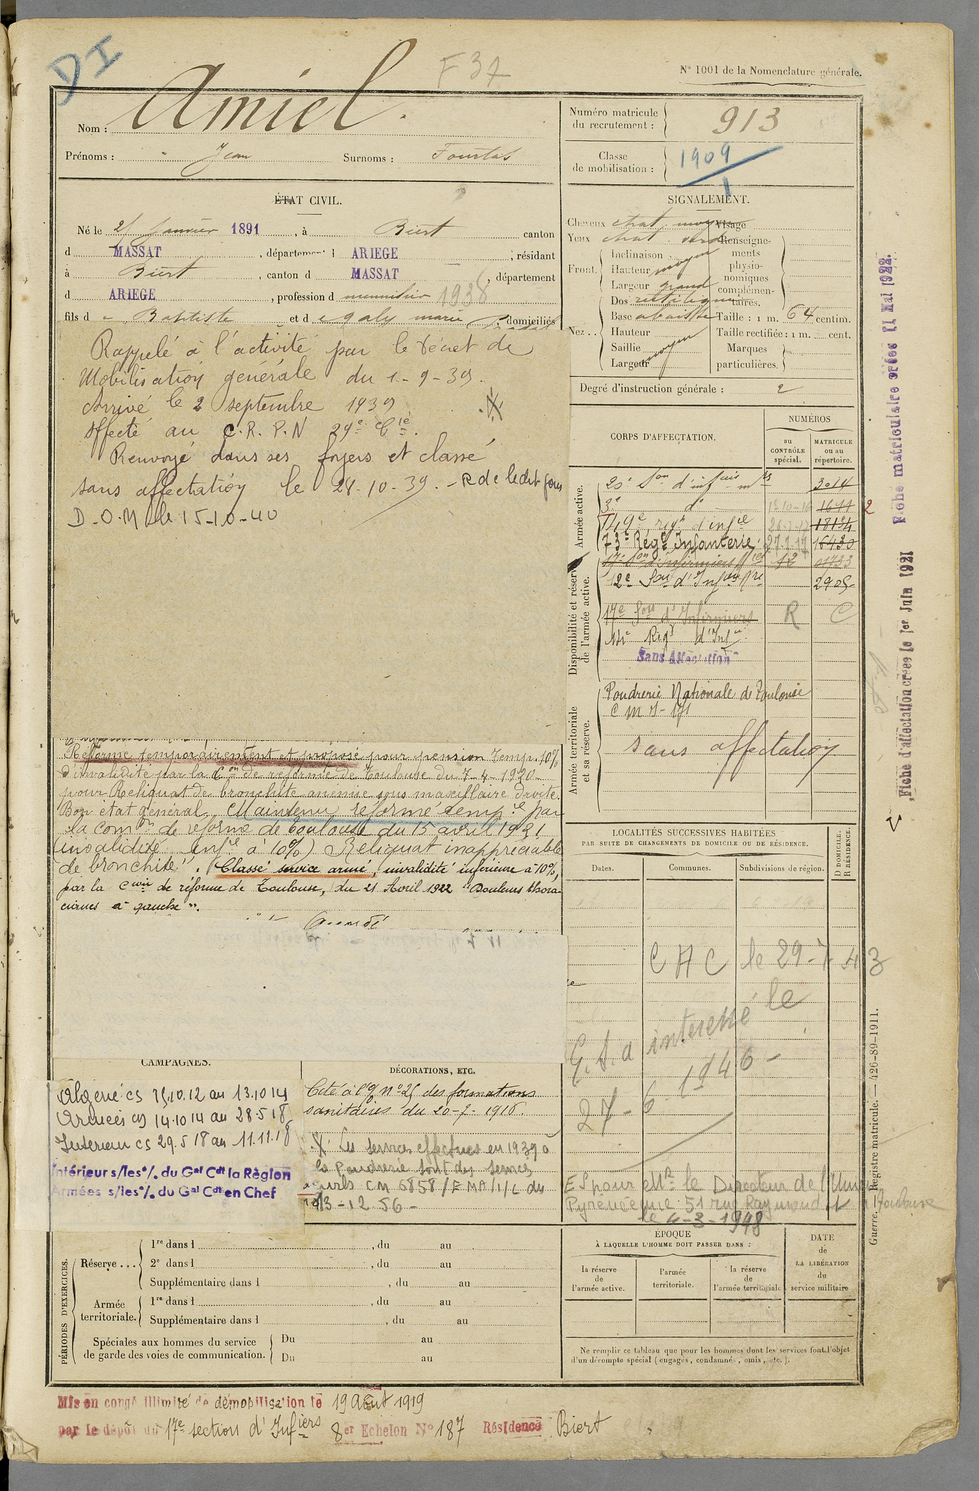 DI
F 37
N° 1001 de la Nomenclature générale.
Nom : Amiel
Prénoms : Jean Surnoms : Tourtas
Numéro matricule du recrutement : 913
Classe de mobilisation : 1909
ÉTAT CIVIL.
Né le 2 Janvier 1891, à Biert canton
d MASSAT, département d ARIEGE, résidant
à Biert, canton d MASSAT, département
d ARIEGE, profession d menuisier 1938
fils d e Baptiste et d e Galy Marie domiciliés
Rappelé à l'activité par le décret de
Mobilisation générale du 1-9-39.
Arrivé le 2 septembre 1939
Affecté au C.R.P.N 29e Cie.
Renvoyé dans ses foyers et classé
sans affectation le 28-10-39. - R de le dit jour
D.O.M. le 15-10-40
SIGNALEMENT.
Cheveux chat. moyen Visage
Yeux chat. verd.
Renseignements physionomiques complémentaires.
Front.
Inclinaison
Hauteur moyen
Largeur grand
Nez.
Dos rectiligne
Base abaissée
Hauteur
Saillie
Largeur moyen
Taille : 1 m. 64 centim.
Taille rectifiée : 1 m. cent.
Marques particulières.
Degré d'instruction générale : 2
CORPS D'AFFECTATION.
NUMÉROS
au CONTRÔLE spécial.
MATRICULE ou au répertoire.
Armée active.
20e Son d'infirs mres 3014
3e do 13-10-16 1611 2
149e régt d'infie 13134
73e Régt Infanterie 27.2.17 16430
17e Son d'Infirmiers
12e Son d'Infirs 2905
Disponibilité et réserve de l'armée active.
17e Son d'Infirmiers R C
Régt d'Infie
Sans Affectation
Armée territoriale et sa réserve.
Poudrerie Nationale de Toulouse
sans affectation
Réformé temporairement et proposé pour pension temp. 10%
d'invalidité par la Con de réforme de Toulouse du 7-4-1920
pour Reliquat de bronchite anémie sous maxillaire droite.
Bon état général. Maintenu réformé temp.re par
la Comon de réforme de Toulouse du 15 avril 1921
(invalidité infre à 10%) Reliquat inappréciable
de bronchite". Classé service armé, invalidité inférieure à 10%,
par la Con de réforme de Toulouse, du 21 Avril 1922 "Douleurs thora-
ciques à gauche".
LOCALITÉS SUCCESSIVES HABITÉES
PAR SUITE DE CHANGEMENTS DE DOMICILE OU DE RÉSIDENCE.
Dates. Communes. Subdivisions de région. D DOMICILE. R RÉSIDENCE.
C A C le 29-7-43
intéressé le
27-6-1946-
E S pour Mr le Directeur de
Pyrénéenne 51 rue Raymond Toulouse
le 4-3-1948
CAMPAGNES.
Algérie cs 9.10.12 au 13.10.14
Armées cs 14.10.14 au 28.5.18
Intérieur cs 29.5.18 au 11.11.18
Intérieur s/les°/. du Gal Cdt la Région
Armées s/les°/. du Gal Cdt en Chef
DÉCORATIONS, ETC.
Cité à l'O n° 25 des formations
sanitaires du 20-2-1918.
X. Les services effectués en 1939 à
la Poudrerie sont des services
civils CM 6858/EMA/1/L du
13-12 56-
PÉRIODES D'EXERCICES.
Réserve . . .
1re dans l , du au
2e dans l , du au
Supplémentaire dans l , du au
Armée territoriale.
1re dans l , du au
Supplémentaire dans l , du au
Spéciales aux hommes du service de garde des voies de communication.
Du au
Du au
ÉPOQUE
À LAQUELLE L'HOMME DOIT PASSER DANS :
la réserve de l'armée active.
l'armée territoriale.
la réserve de l'armée territoriale
DATE de LA LIBÉRATION du service militaire
Ne remplir ce tableau que pour les hommes dont les services font l'objet
d'un décompte spécial (engagés, condamnés, omis, etc.).
Mis en congé illimité de démobilisation le 19 Août 1919
par le dépôt du 17e section d'Infiers 8er Echelon N° 187 Résidence Biert
Fiche matriculaire créée 11 Mai 1922.
Fiche d'affectation créée le 1er Juin 1921
Guerre. — Registre matricule. — 426-89-1911.